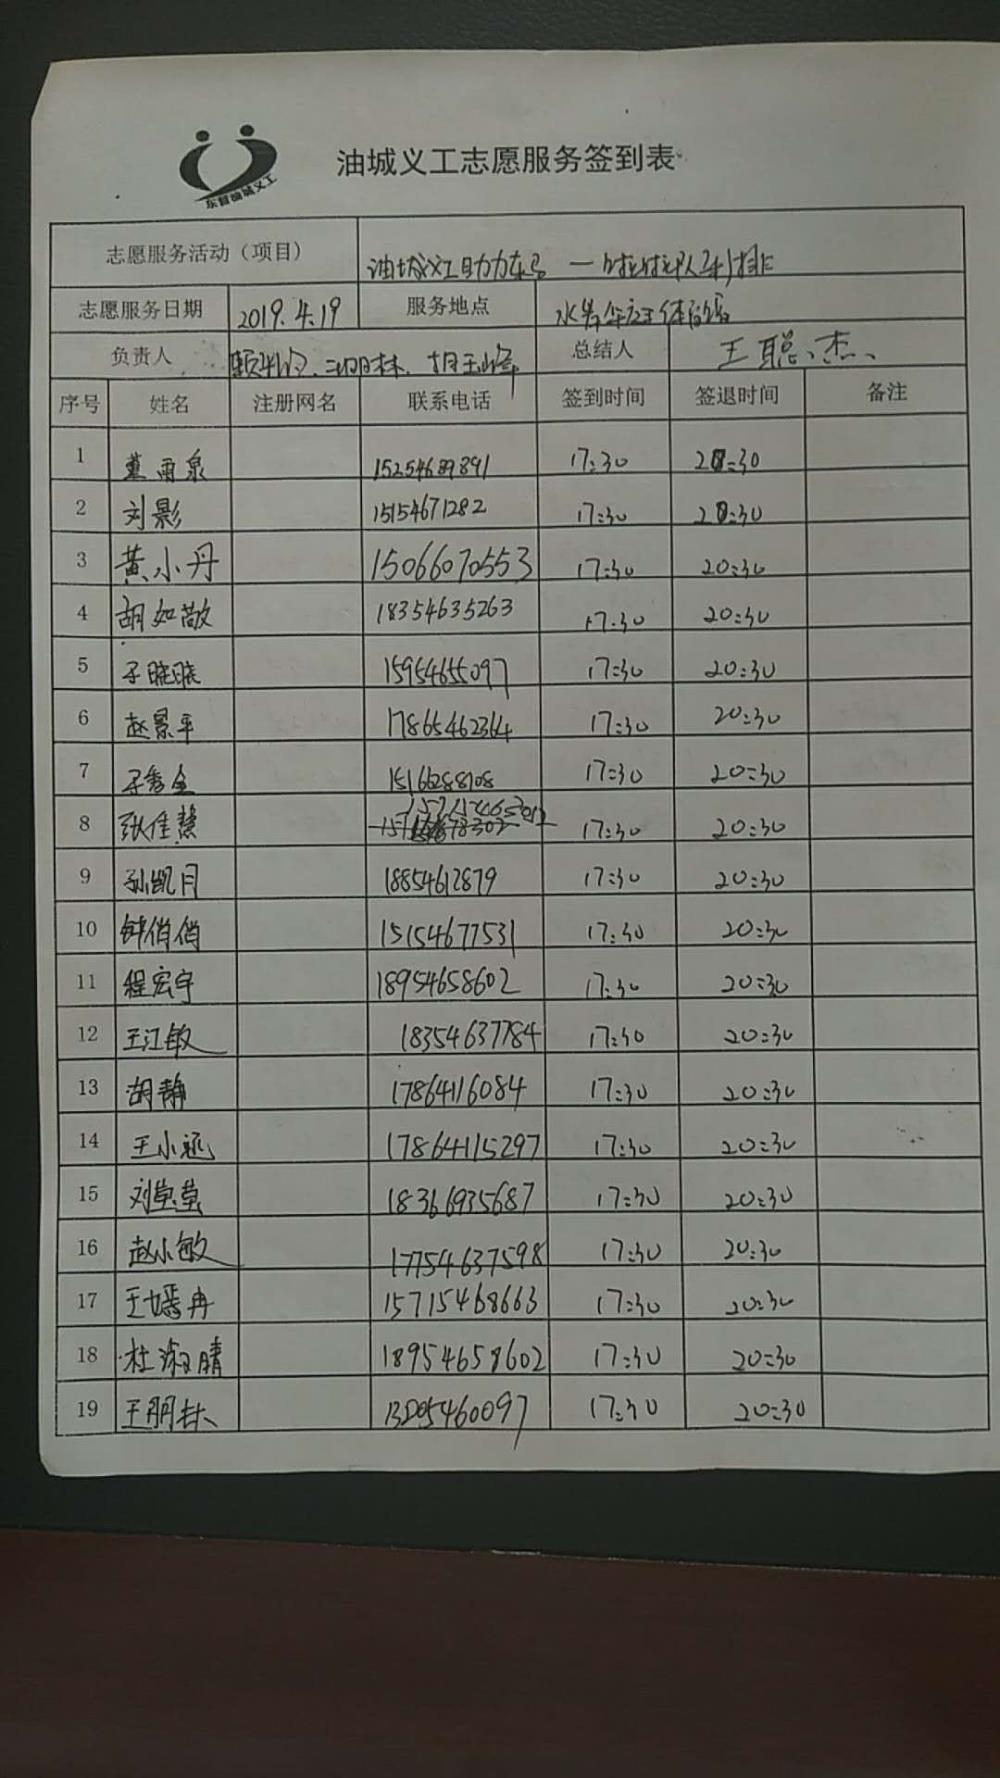 东营油城义工
油城义工志愿服务签到表
志愿服务活动（项目） 油城义工助力东马 — 啦啦队彩排
志愿服务日期 2019.4.19 服务地点
负责人 王朋林、胡玉峰 总结人 王聪、杰、
序号 姓名 注册网名 联系电话 签到时间 签退时间 备注
1 董雨泉 15254689891 17:30 20:30
2 刘影 15154671282 17:30 20:30
3 黄小丹 15066070553 17:30 20:30
4 胡如敬 18354635263 17:30 20:30
5 于晓晓 15954655097 17:30 20:30
6 赵景平 17865462364 17:30 20:30
7 于秀全 15166288708 17:30 20:30
8 张佳慧 17:30 20:30
9 孙凯月 18854612879 17:30 20:30
10 钟俏俏 15154677531 17:30 20:30
11 程宏宇 18954658602 17:30 20:30
12 王江敏 18354637784 17:30 20:30
13 胡静 17864116084 17:30 20:30
14 王小远 17864115297 17:30 20:30
15 刘莹莹 18366935687 17:30 20:30
16 赵小敏 17754637598 17:30 20:30
17 王嫣冉 15715468663 17:30 20:30
18 杜淑晴 18954658602 17:30 20:30
19 王朋林 13205460097 17:30 20:30